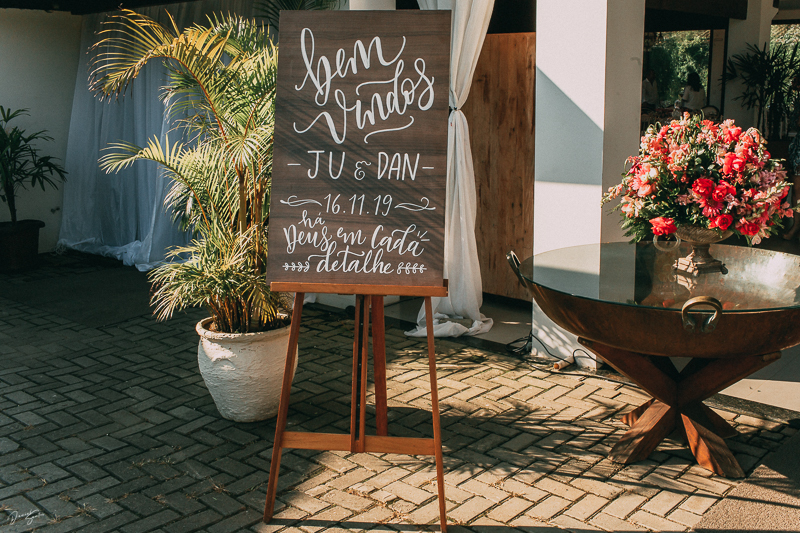 bem
vindos
JU & DAN
16.11.19
há
Deus em Cada
detalhe